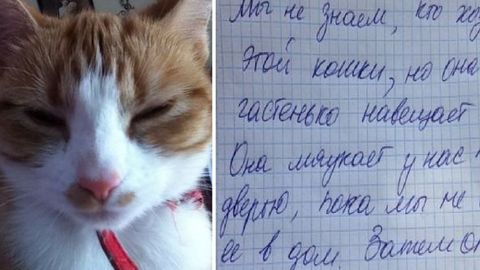 Мы не знаем, кто хо
этой кошки, но она
частенько навещает
Она мяукает у нас
дверью, пока мы не
ее в дом. Затем о